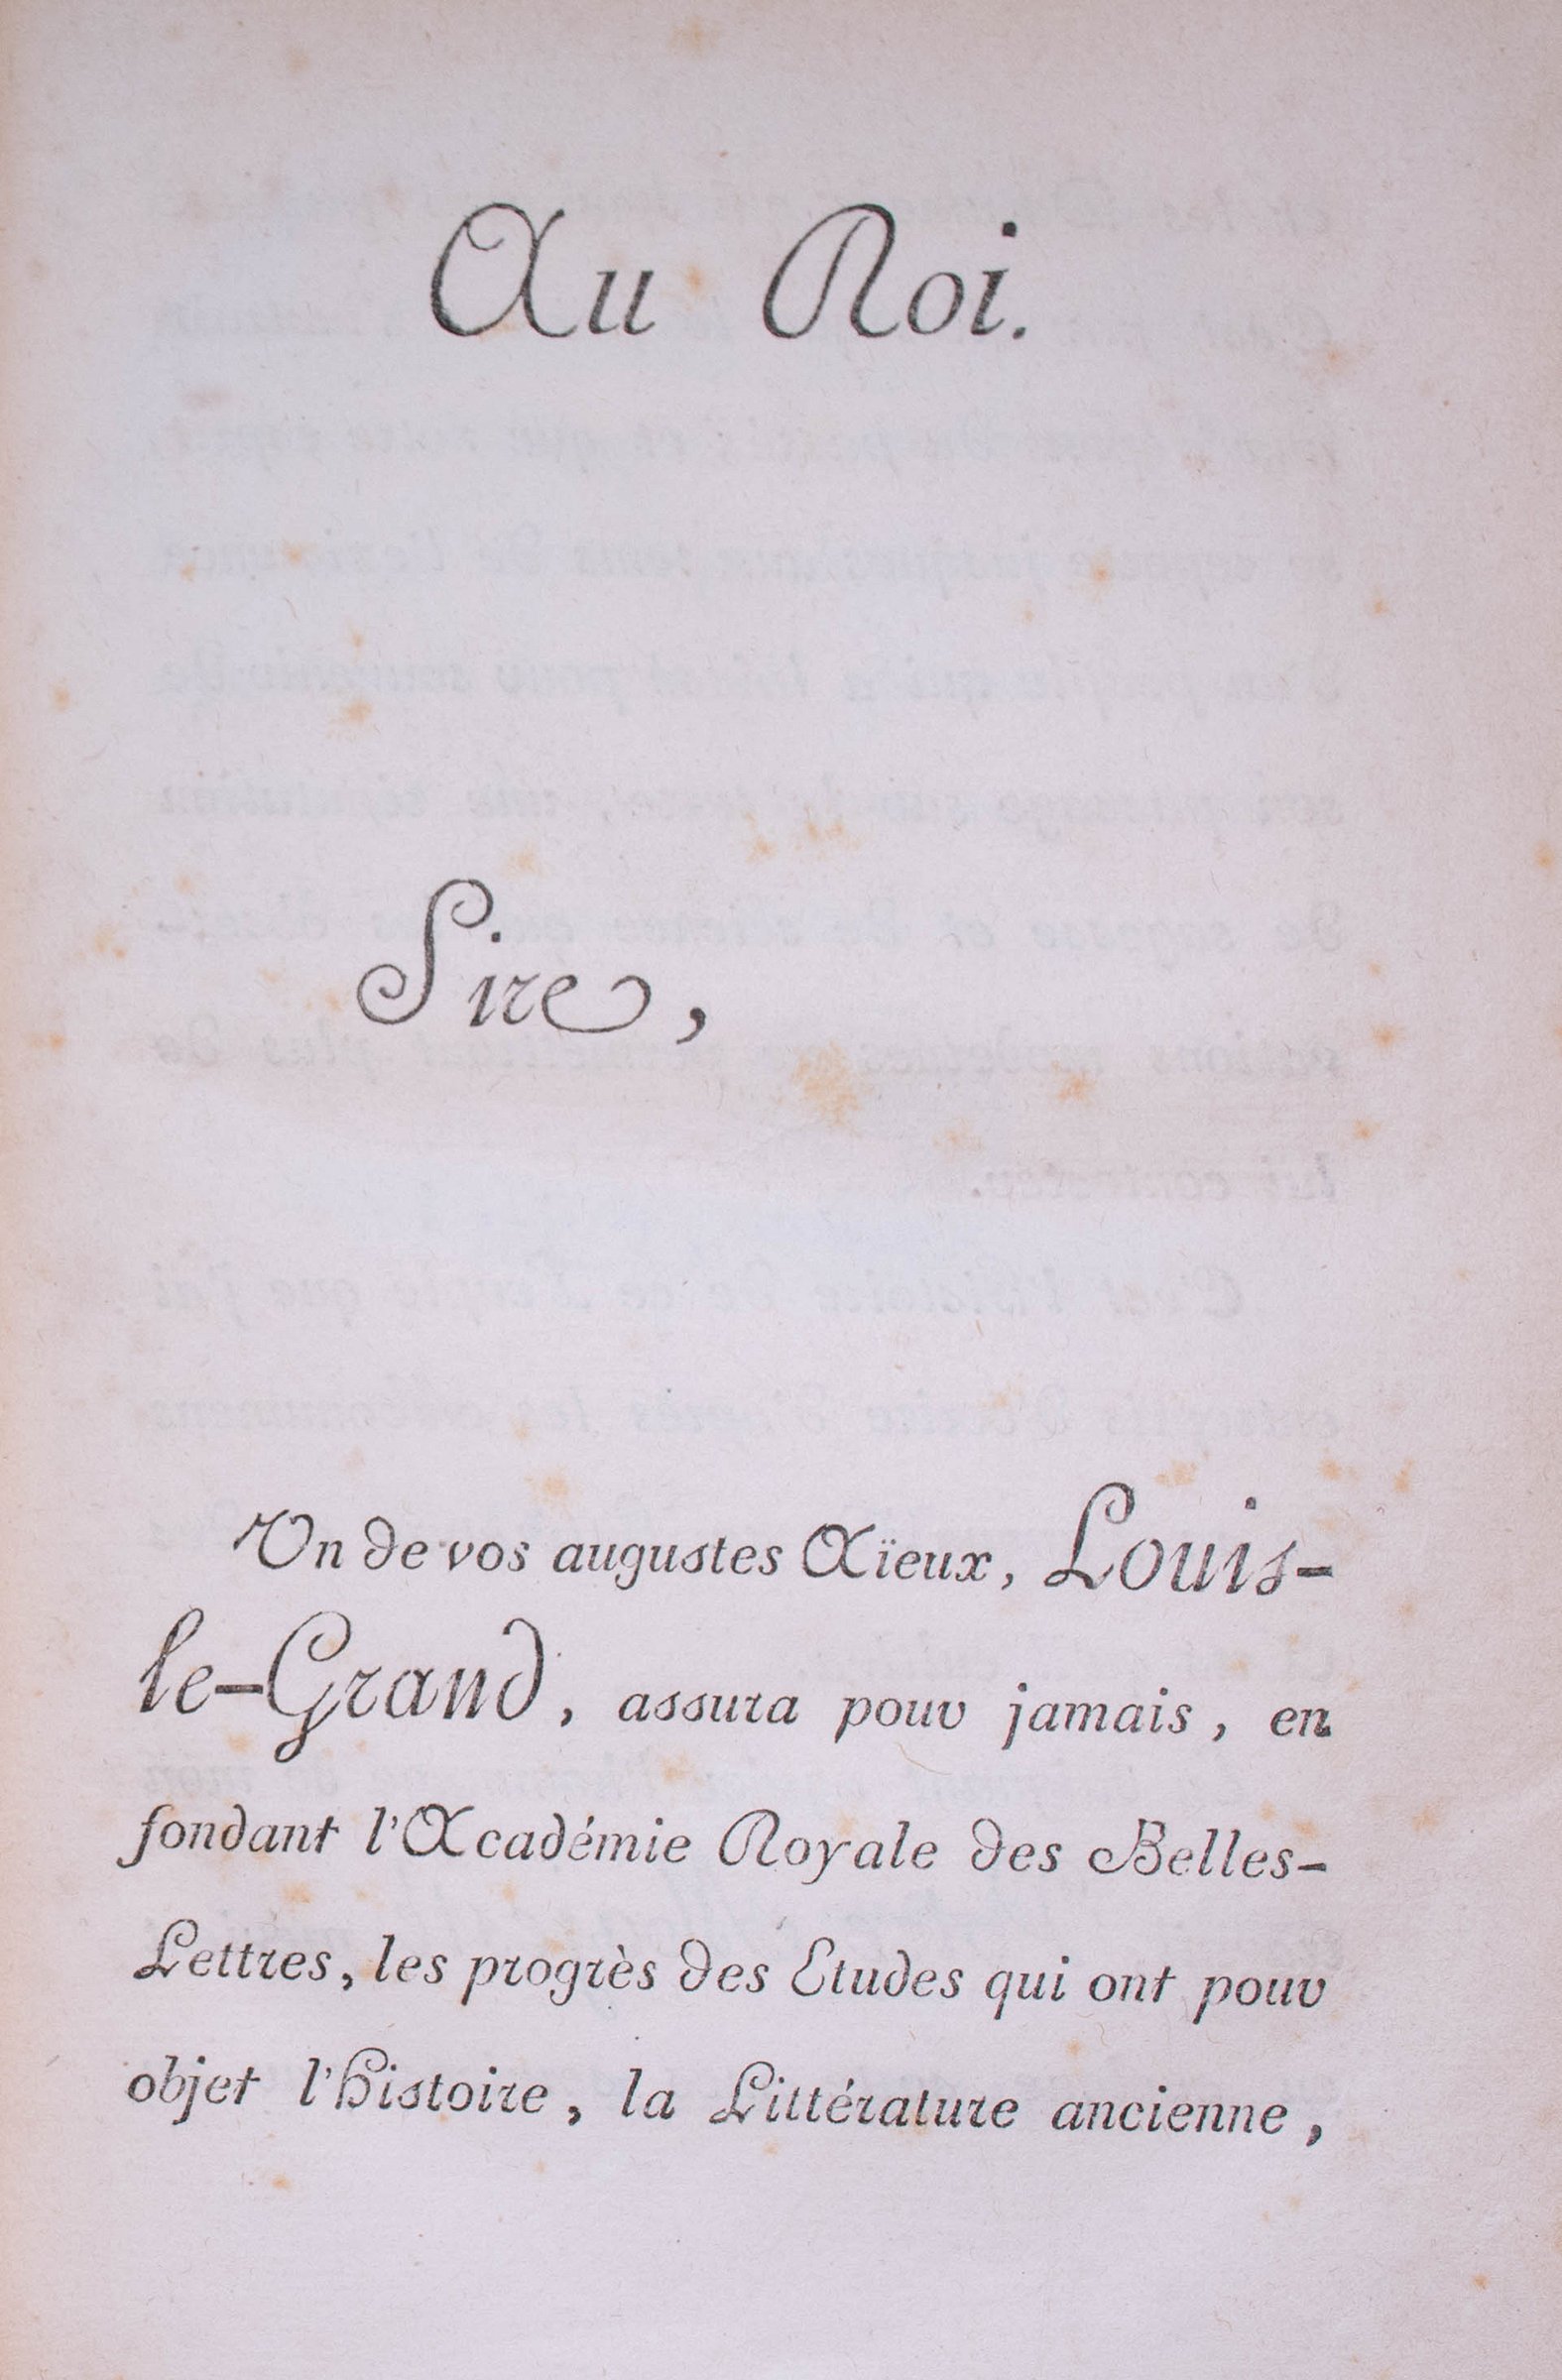 Au Roi.
Sire,
Un de vos augustes Aïeux, Louis-
le-Grand, assura pour jamais, en
fondant l'Académie Royale des Belles-
Lettres, les progrès des Etudes qui ont pour
objet l'histoire, la Littérature ancienne,